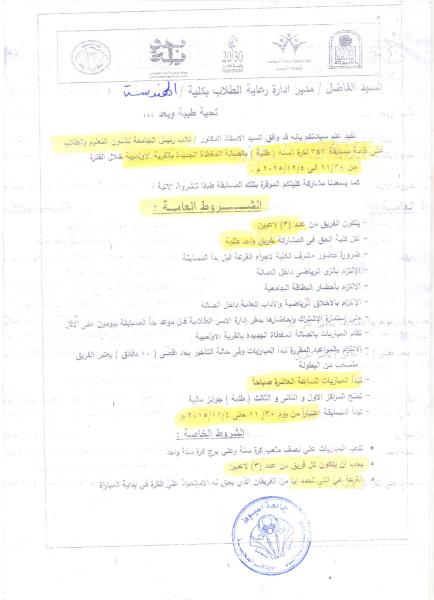 السيد الفاضل / مدير ادارة رعاية الطلاب بكلية / الهندسة
تحية طيبة وبعد ...
نفيد علم سيادتكم بأنه قد وافق السيد الاستاذ الدكتور / نائب رئيس الجامعة لشئون التعليم والطلاب
على إقامة مسابقة ٣×٣ لكرة السلة ( طلبة ) بالصالة المغطاة الجديدة بالقرية الاولمبية خلال الفترة
من ١١/٣٠ الى ٢٠٢٥/١٢/٤ م .
كما يسعدنا مشاركة كليتكم الموقرة بتلك المسابقة طبقا للشروط الاتية :
الشروط العامة :
- يتكون الفريق من عدد (٣) لاعبين
- لكل كلية الحق فى المشاركة بفريق واحد طلبة
- ضرورة حضور مشرف الكلية لاجراء القرعة قبل بدأ المسابقة
- الالتزام بالزى الرياضى داخل الصالة
- الالتزام بأحضار البطاقة الجامعية
- الالتزام بالاخلاق الرياضية والاداب العامة داخل الصالة
- ملئ استمارة الإشتراك وإحضارها بمقر إدارة الاسر الطلابية قبل موعد بدأ المسابقة بيومين على الأقل
- تقام المباريات بالصالة المغطاة الجديدة بالقرية الاولمبية
- الالتزام بالمواعيد المقررة لبدأ المباريات وفى حالة التأخير بحد اقصى ( ١٠ دقائق ) يعتبر الفريق
منسحب من البطولة
- تبدأ المباريات الساعة العاشرة صباحاً
- تمنح المراكز الاول والثانى و الثالث ( طلبة ) جوائز مالية
- تبدأ المسابقة إعتباراً من يوم ١١/٣٠ حتى ٢٠٢٥/١٢/٤ م
الشروط الخاصة :
- تلعب المباريات على نصف ملعب كرة سلة وعلى برج كرة سلة واحد
- يجب ان يتكون كل فريق من عدد (٣) لاعبين
- القرعة هى التى تحدد أيا من الفريقان الذى يحق له الاستحواذ على الكرة فى بداية المباراة
جامعة أسيوط